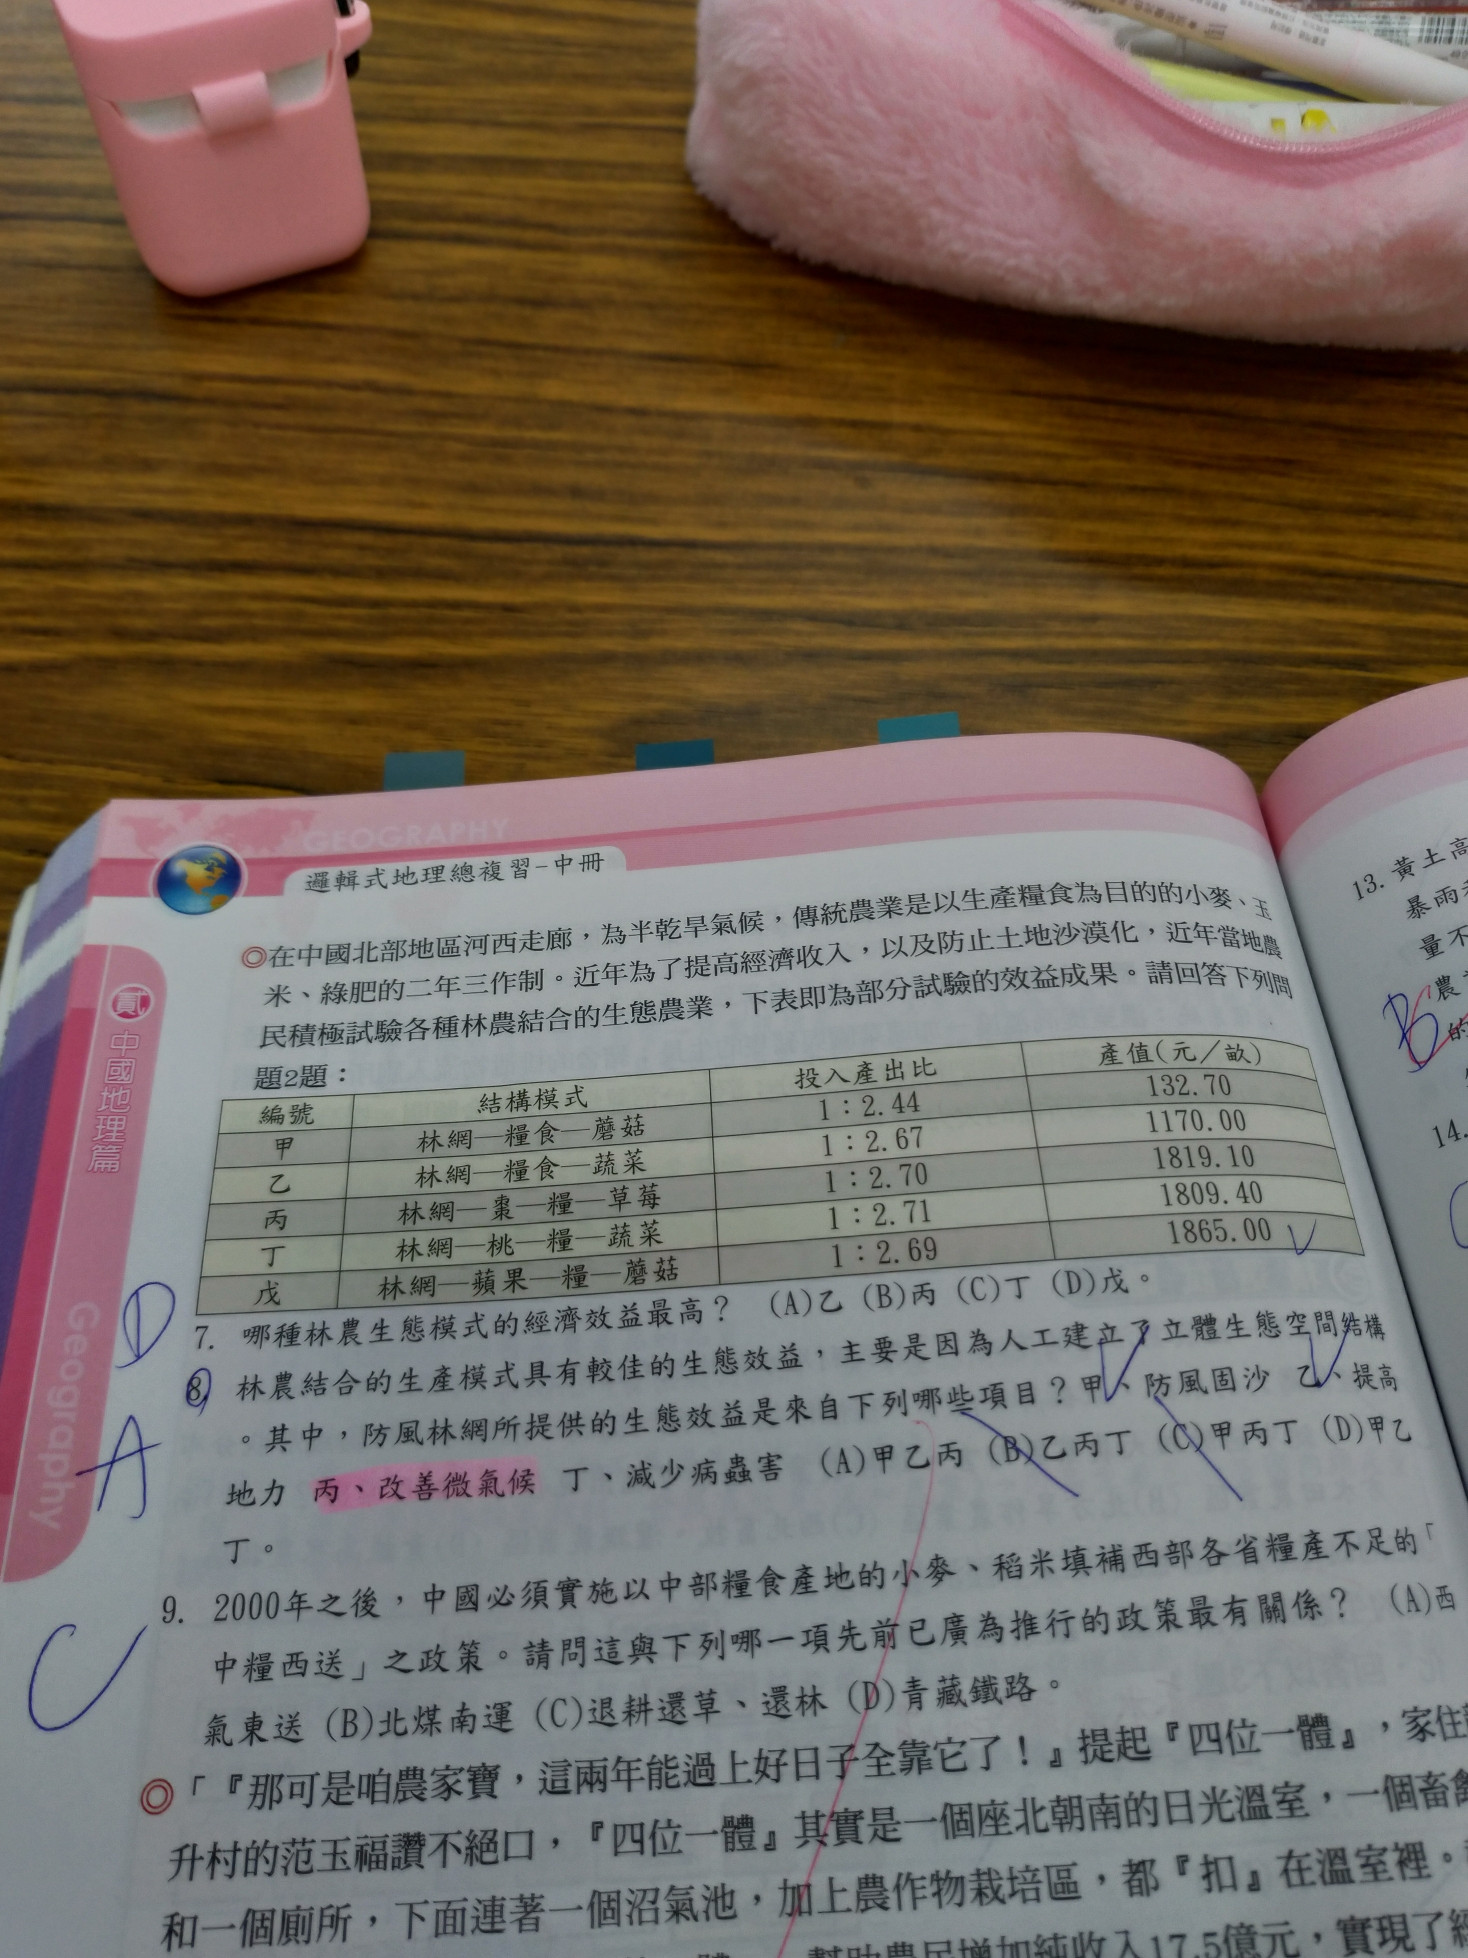 GEOGRAPHY
邏輯式地理總複習-中冊
貳 中國地理篇
Geography
◎在中國北部地區河西走廊，為半乾旱氣候，傳統農業是以生產糧食為目的的小麥、玉
米、綠肥的二年三作制。近年為了提高經濟收入，以及防止土地沙漠化，近年當地農
民積極試驗各種林農結合的生態農業，下表即為部分試驗的效益成果。請回答下列問
題2題：
編號 結構模式 投入產出比 產值(元／畝)
甲 林網—糧食—蘑菇 1：2.44 132.70
乙 林網—糧食—蔬菜 1：2.67 1170.00
丙 林網—棗—糧—草莓 1：2.70 1819.10
丁 林網—桃—糧—蔬菜 1：2.71 1809.40
戊 林網—蘋果—糧—蘑菇 1：2.69 1865.00
D 7. 哪種林農生態模式的經濟效益最高？ (A)乙 (B)丙 (C)丁 (D)戊。
8. 林農結合的生產模式具有較佳的生態效益，主要是因為人工建立了立體生態空間結構
A 。其中，防風林網所提供的生態效益是來自下列哪些項目？甲、防風固沙 乙、提高
地力 丙、改善微氣候 丁、減少病蟲害 (A)甲乙丙 (B)乙丙丁 (C)甲丙丁 (D)甲乙
丁。
C 9. 2000年之後，中國必須實施以中部糧食產地的小麥、稻米填補西部各省糧產不足的「
中糧西送」之政策。請問這與下列哪一項先前已廣為推行的政策最有關係？ (A)西
氣東送 (B)北煤南運 (C)退耕還草、還林 (D)青藏鐵路。
◎「『那可是咱農家寶，這兩年能過上好日子全靠它了！』提起『四位一體』，家住
升村的范玉福讚不絕口，『四位一體』其實是一個座北朝南的日光溫室，一個畜
和一個廁所，下面連著一個沼氣池，加上農作物栽培區，都『扣』在溫室裡。
幫助農民增加純收入17.5億元，實現了
13. 黃土高
暴雨
量不
B 農
的
14.